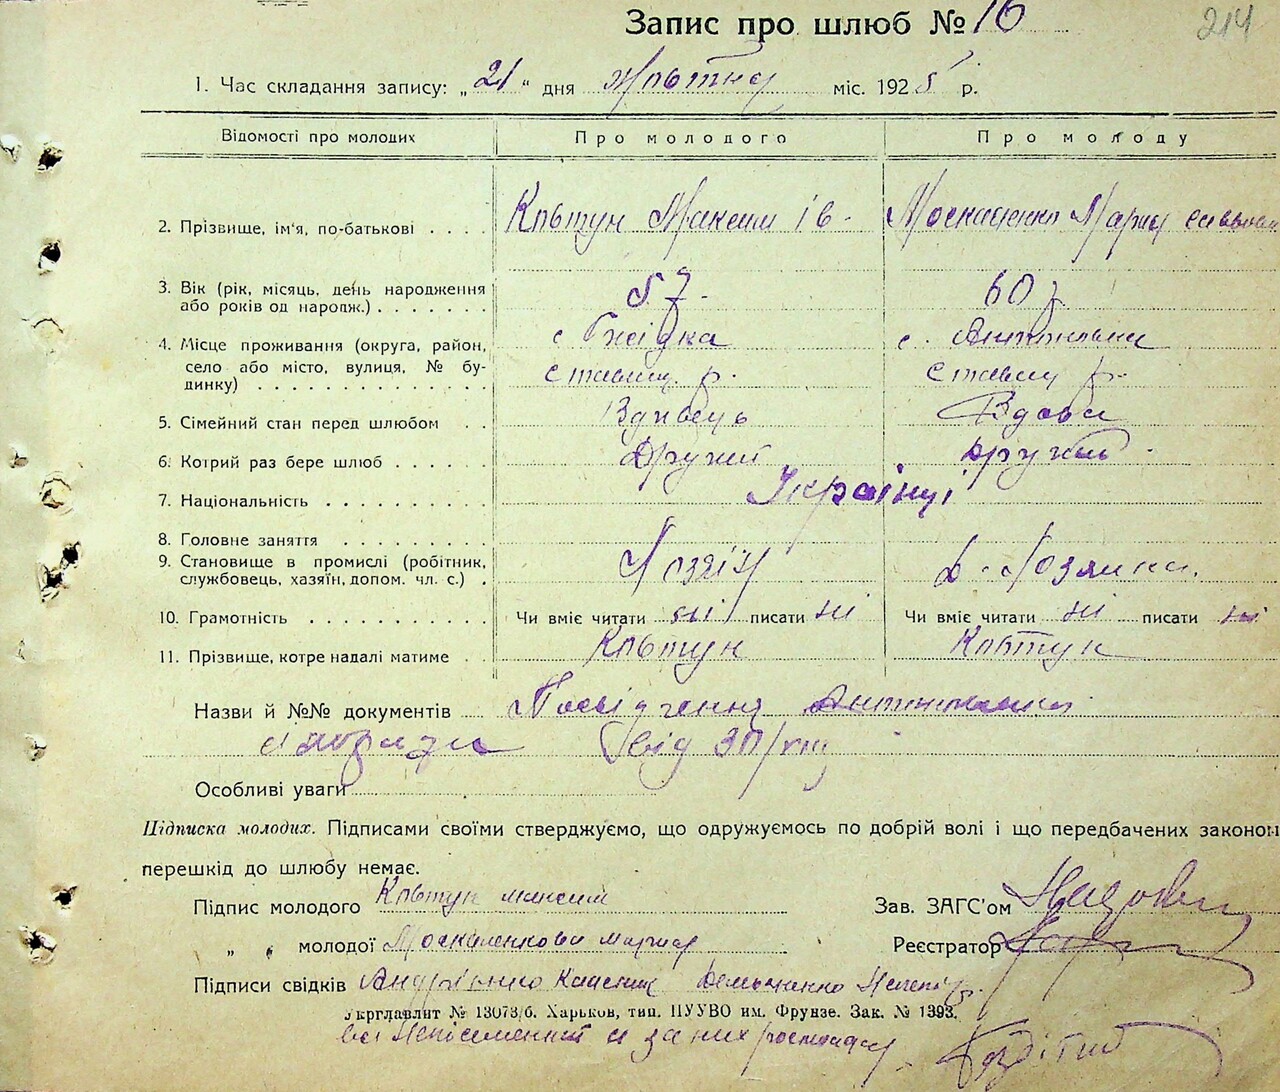 214
Запис про шлюб № 16
1. Час складання запису: „21“ дня Жовтня міс. 1925 р.
Відомості про молодих Про молодого Про молоду
2. Прізвище, ім'я, по-батькові . . . . Ковтун Максим Ів - Москаленко Мария
3. Вік (рік, місяць, день народження
або років од нарояж.) . . . . . . . 57. 60 р.
4. Місце проживання (округа, район, с Гнідка с.
село або місто, вулиця, № бу- Ставищ. р. Ставищ р.
динку) . . . . . . . . . . . . .
5. Сімейний стан перед шлюбом . . Вдівець Вдова
6. Котрий раз бере шлюб . . . . . . Другий другий
7. Національність . . . . . . . . . Українці
8. Головне заняття . . . . . . . .
9. Становище в промислі (робітник, Хозяїн Д. Хозяйка.
службовець, хазяїн, допом. чл. с.) .
10. Грамотність . . . . . . . . . . . Чи вміє читати ні писати ні Чи вміє читати ні писати ні
11. Прізвище, котре надалі матиме . . Ковтун Ковтун
Назви й №№ документів Посвідчення
від 30/
Особливі уваги
Підписка молодих. Підписами своїми стверджуємо, що одружуємось по добрій волі і що передбачених законом
перешкід до шлюбу немає.
Підпис молодого Ковтун максим Зав. ЗАГС'ом
„ „ молодої Москаленкова мария Реєстратор
Підписи свідків
Укрглавлит № 13073/б. Харьков, тип. ПУУВО им. Фрунзе. Зак. № 1393.
всі за них